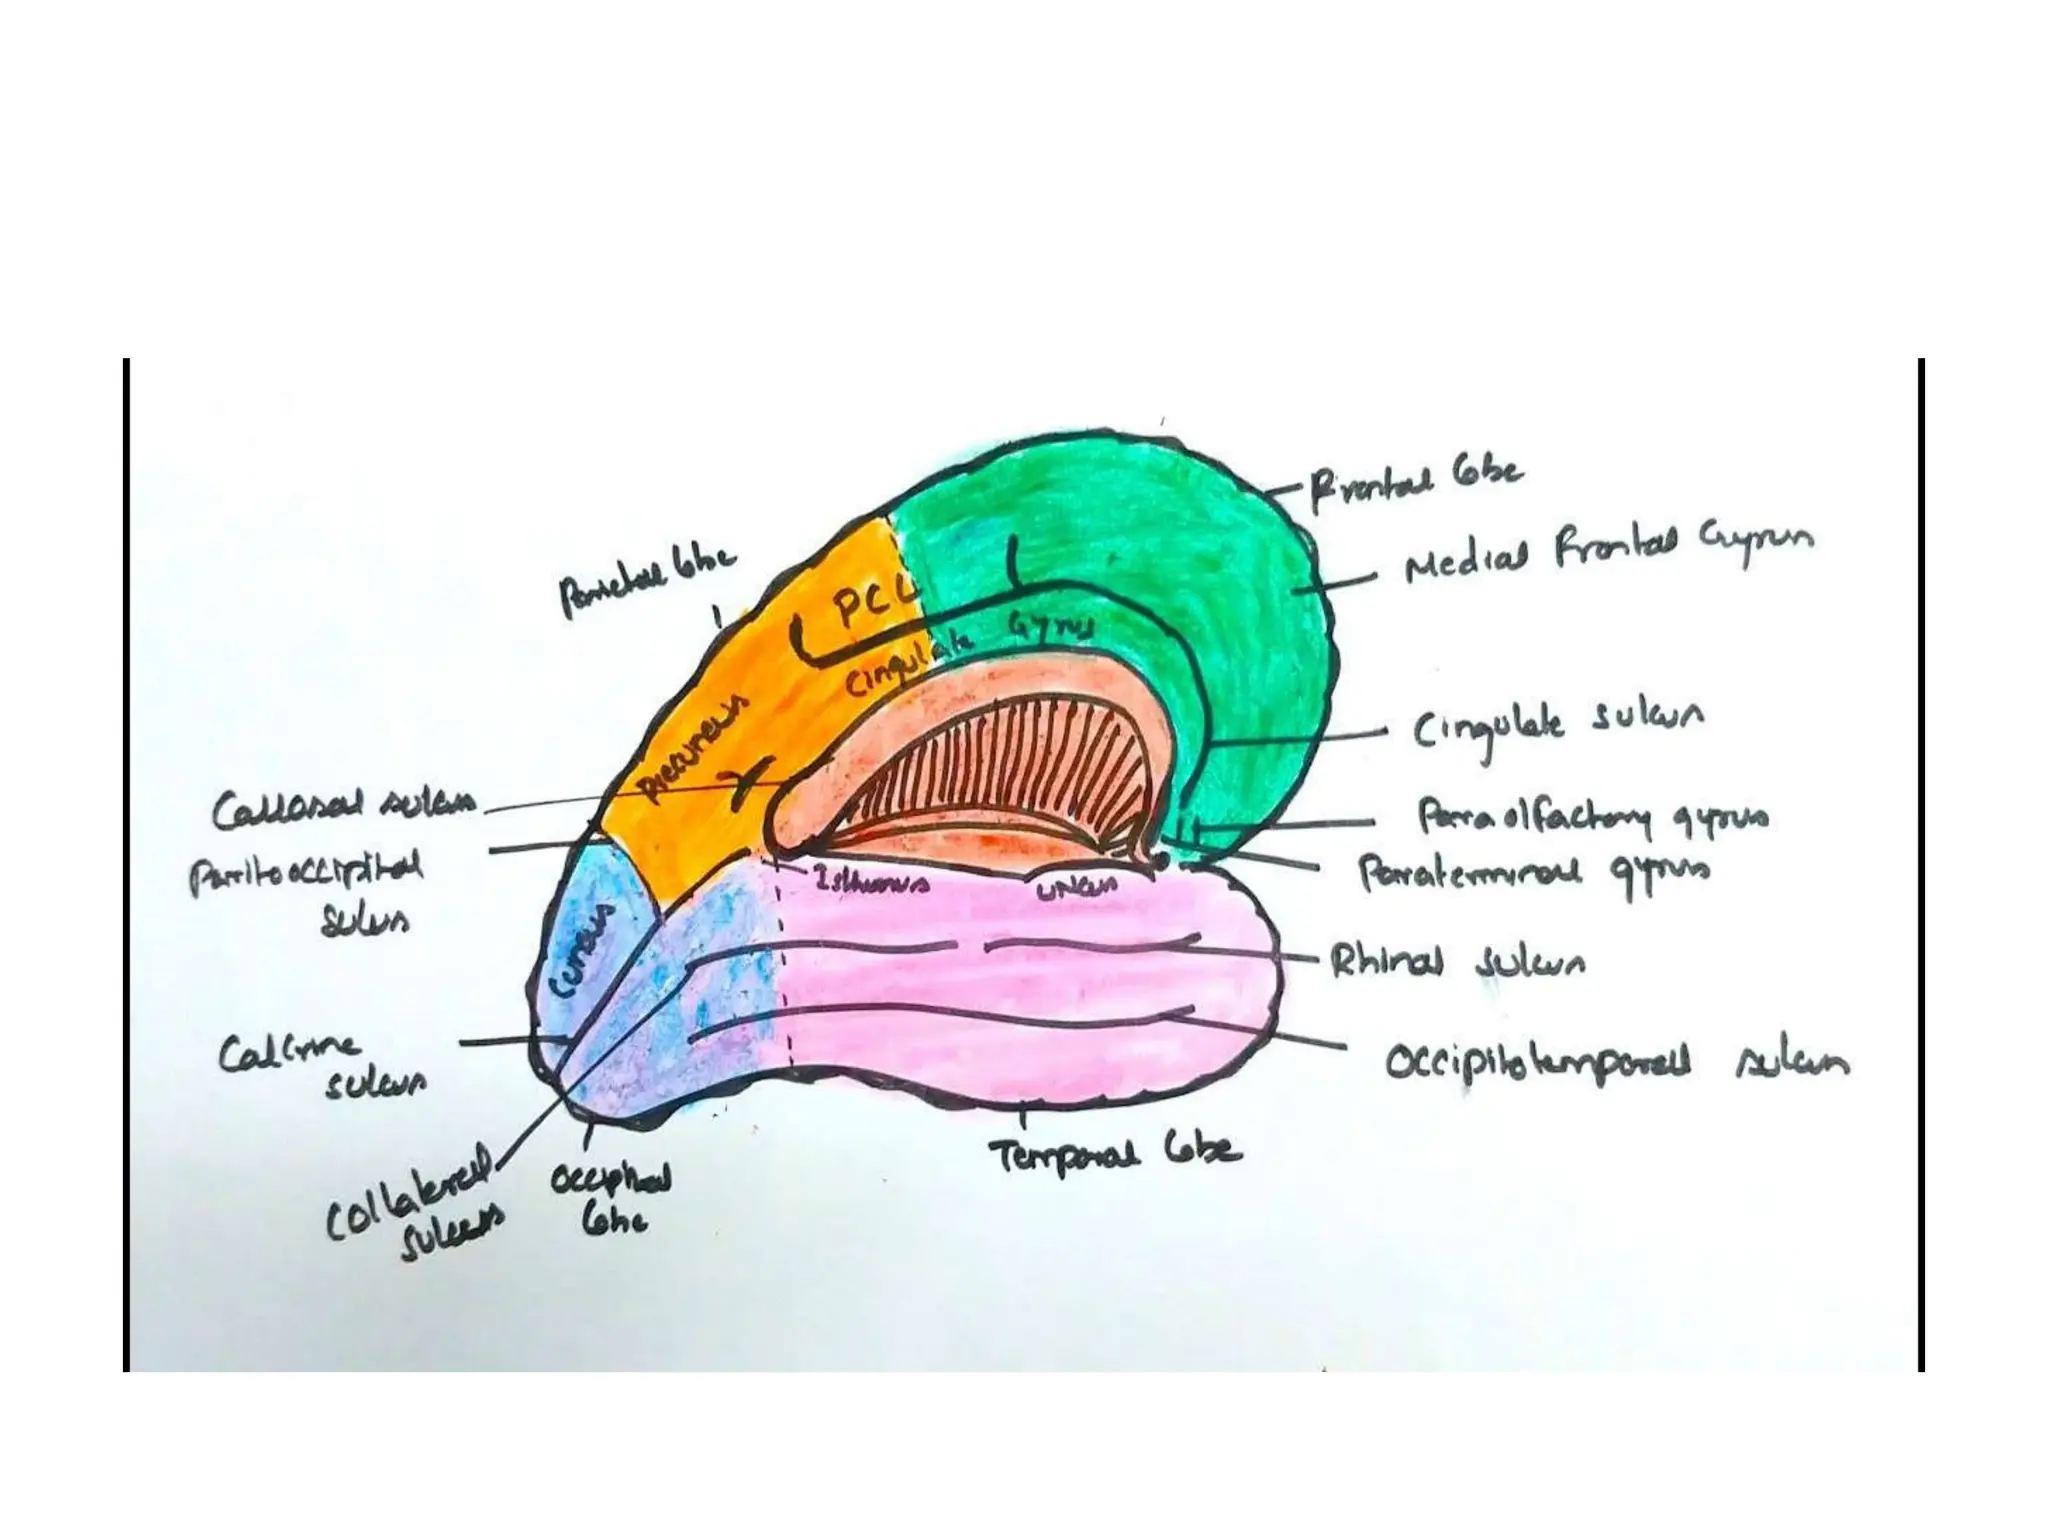 Frontal lobe
Medial Frontal Gyrus
Parietal lobe
PCL
Cingulate Gyrus
Precuneus
Cingulate sulcus
Callosal sulcus
Paraolfactory gyrus
Parritooccipital
sulus
Paraterminal gyrus
Isthumus
uncus
Cuneus
Rhinal sulcus
Calcrine
sulcus
Occipitotemporal sulcus
Temporal lobe
Collateral
sulcus
Occipital
lobe